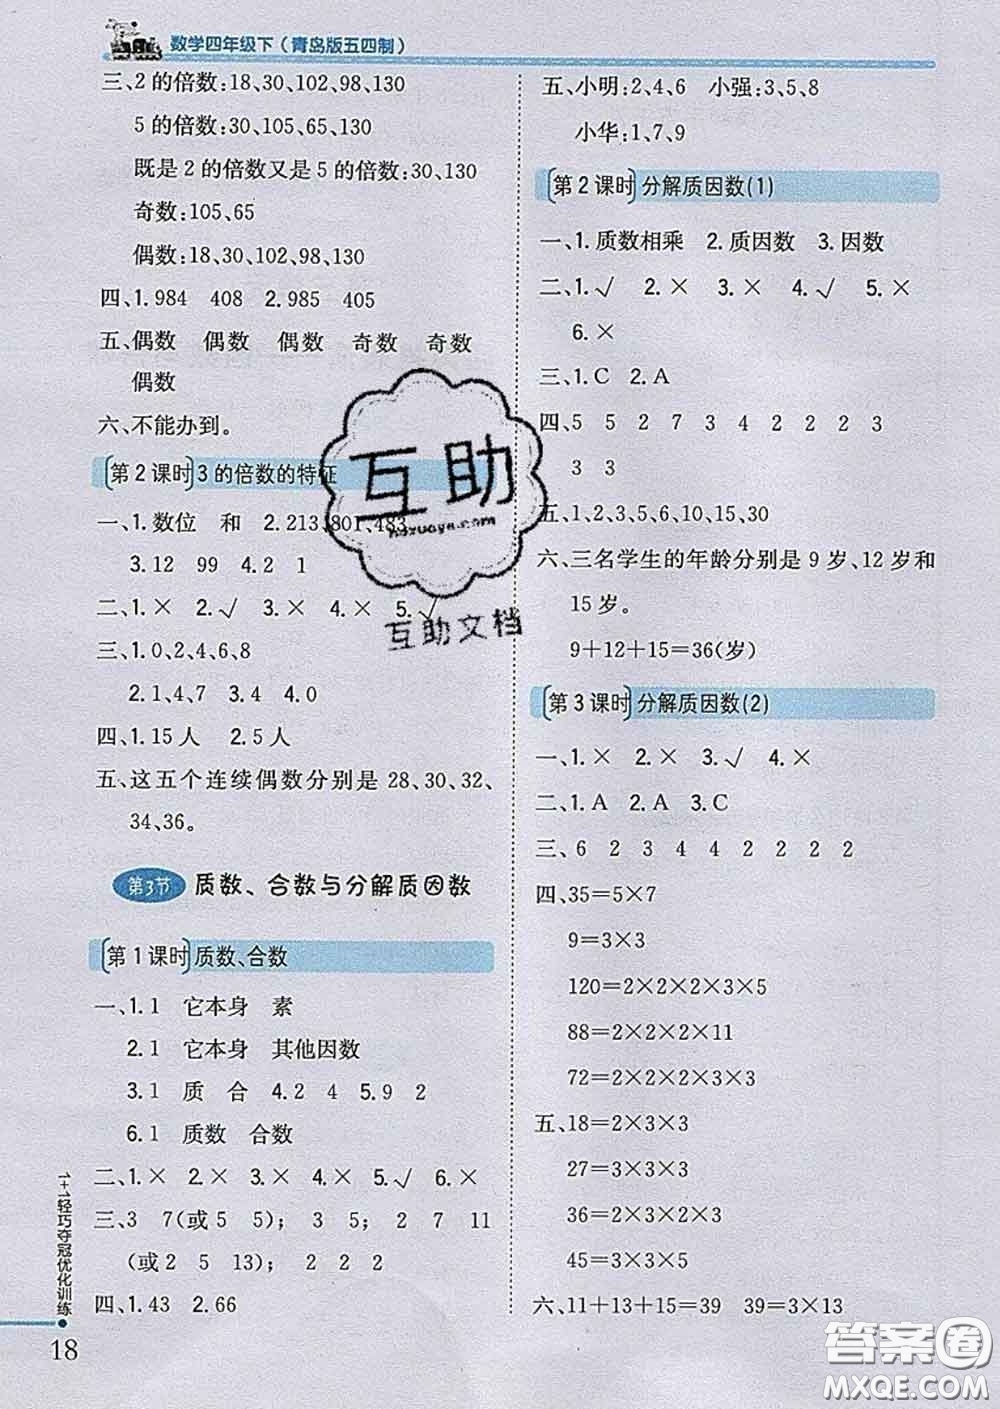 数学四年级下(青岛版五四制)
三、2的倍数:18、30、102、98、130
5的倍数:30、105、65、130
既是2的倍数又是5的倍数:30、130
奇数:105、65
偶数:18、30、102、98、130
四、1.984 408 2.985 405
五、偶数 偶数 偶数 奇数 奇数
偶数
六、不能办到。
第2课时 3的倍数的特征
一、1.数位 和 2.213、801、483
3.12 99 4.2 1
二、1.× 2.√ 3.× 4.× 5.√
三、1.0、2、4、6、8
2.1、4、7 3.4 4.0
四、1.15人 2.5人
五、这五个连续偶数分别是28、30、32、
34、36。
第3节 质数、合数与分解质因数
第1课时 质数、合数
一、1.1 它本身 素
2.1 它本身 其他因数
3.1 质 合 4.2 4 5.9 2
6.1 质数 合数
二、1.× 2.× 3.× 4.× 5.√ 6.×
三、3 7(或5 5); 3 5; 2 7 11
(或2 5 13); 2 2 2
四、1.43 2.66
五、小明:2、4、6 小强:3、5、8
小华:1、7、9
第2课时 分解质因数(1)
一、1.质数相乘 2.质因数 3.因数
二、1.√ 2.× 3.× 4.√ 5.×
6.×
三、1.C 2.A
四、5 5 2 7 3 4 2 2 2 3
3 3
五、1、2、3、5、6、10、15、30
六、三名学生的年龄分别是9岁、12岁和
15岁。
9+12+15=36(岁)
第3课时 分解质因数(2)
一、1.× 2.× 3.√ 4.×
二、1.A 2.A 3.C
三、6 2 3 4 4 2 2 2 2
四、35=5×7
9=3×3
120=2×2×2×3×5
88=2×2×2×11
72=2×2×2×3×3
五、18=2×3×3
27=3×3×3
36=2×2×3×3
45=3×3×5
六、11+13+15=39 39=3×13
1+1轻巧夺冠优化训练
18
互助
Hdzuoye.com
互助文档
答案圈
MXQE.COM